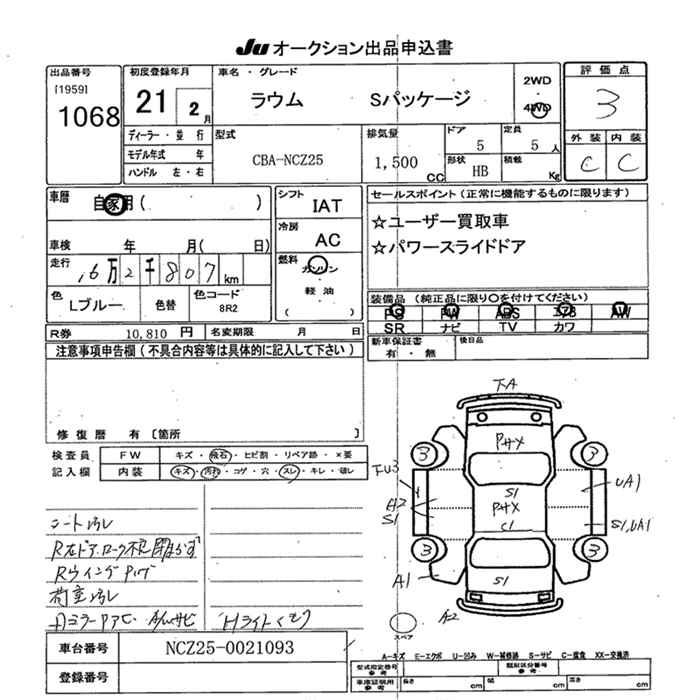 Ju オークション出品申込書
出品番号
[1959]
1068
初度登録年月
21 2 月
ディーラー・並 行
モデル年式 年
ハンドル 左・右
車名・グレード
ラウム Sパッケージ
2WD
4WD
型式
CBA-NCZ25
排気量
1,500 CC
ドア
5
定員
5 人
形状
HB
積載
Kg
評価点
3
外装 内装
C C
車歴
自家用( )
車検 年 月( 日)
走行
16万2千807km
色
Lブルー
色替
色コード
8R2
シフト
IAT
冷房
AC
燃料
ガソリン
軽油
( )
セールスポイント(正常に機能するものに限ります)
☆ユーザー買取車
☆パワースライドドア
装備品(純正品に限り〇を付けてください)
PS PW ABS エアB AW
SR ナビ TV カワ
新車保証書
有・無
後日品
R券 10,810 円 名変期限 月 日
注意事項申告欄(不具合内容等は具体的に記入して下さい)
修復歴 有〔箇所 〕
検査員
記入欄
FW キズ・飛石・ヒビ割・リペア跡・×要
内装 キズ・汚れ・コゲ・穴・スレ・キレ・破レ
シート汚レ
荷室汚レ
Hライトくもり
T-A
PHX
3 3
S1
PHX
C1
UA1
S1
S1,UA1
3 3
A1
S1
A2
スペア
A-キズ E-エクボ U-凹み W-補修跡 S-サビ C-腐食 XX-交換済
車台番号 NCZ25-0021093
登録番号
型式指定番号
参考
類別区分番号
参考
車庫証明用
参考
長さ cm 幅 cm 高さ cm